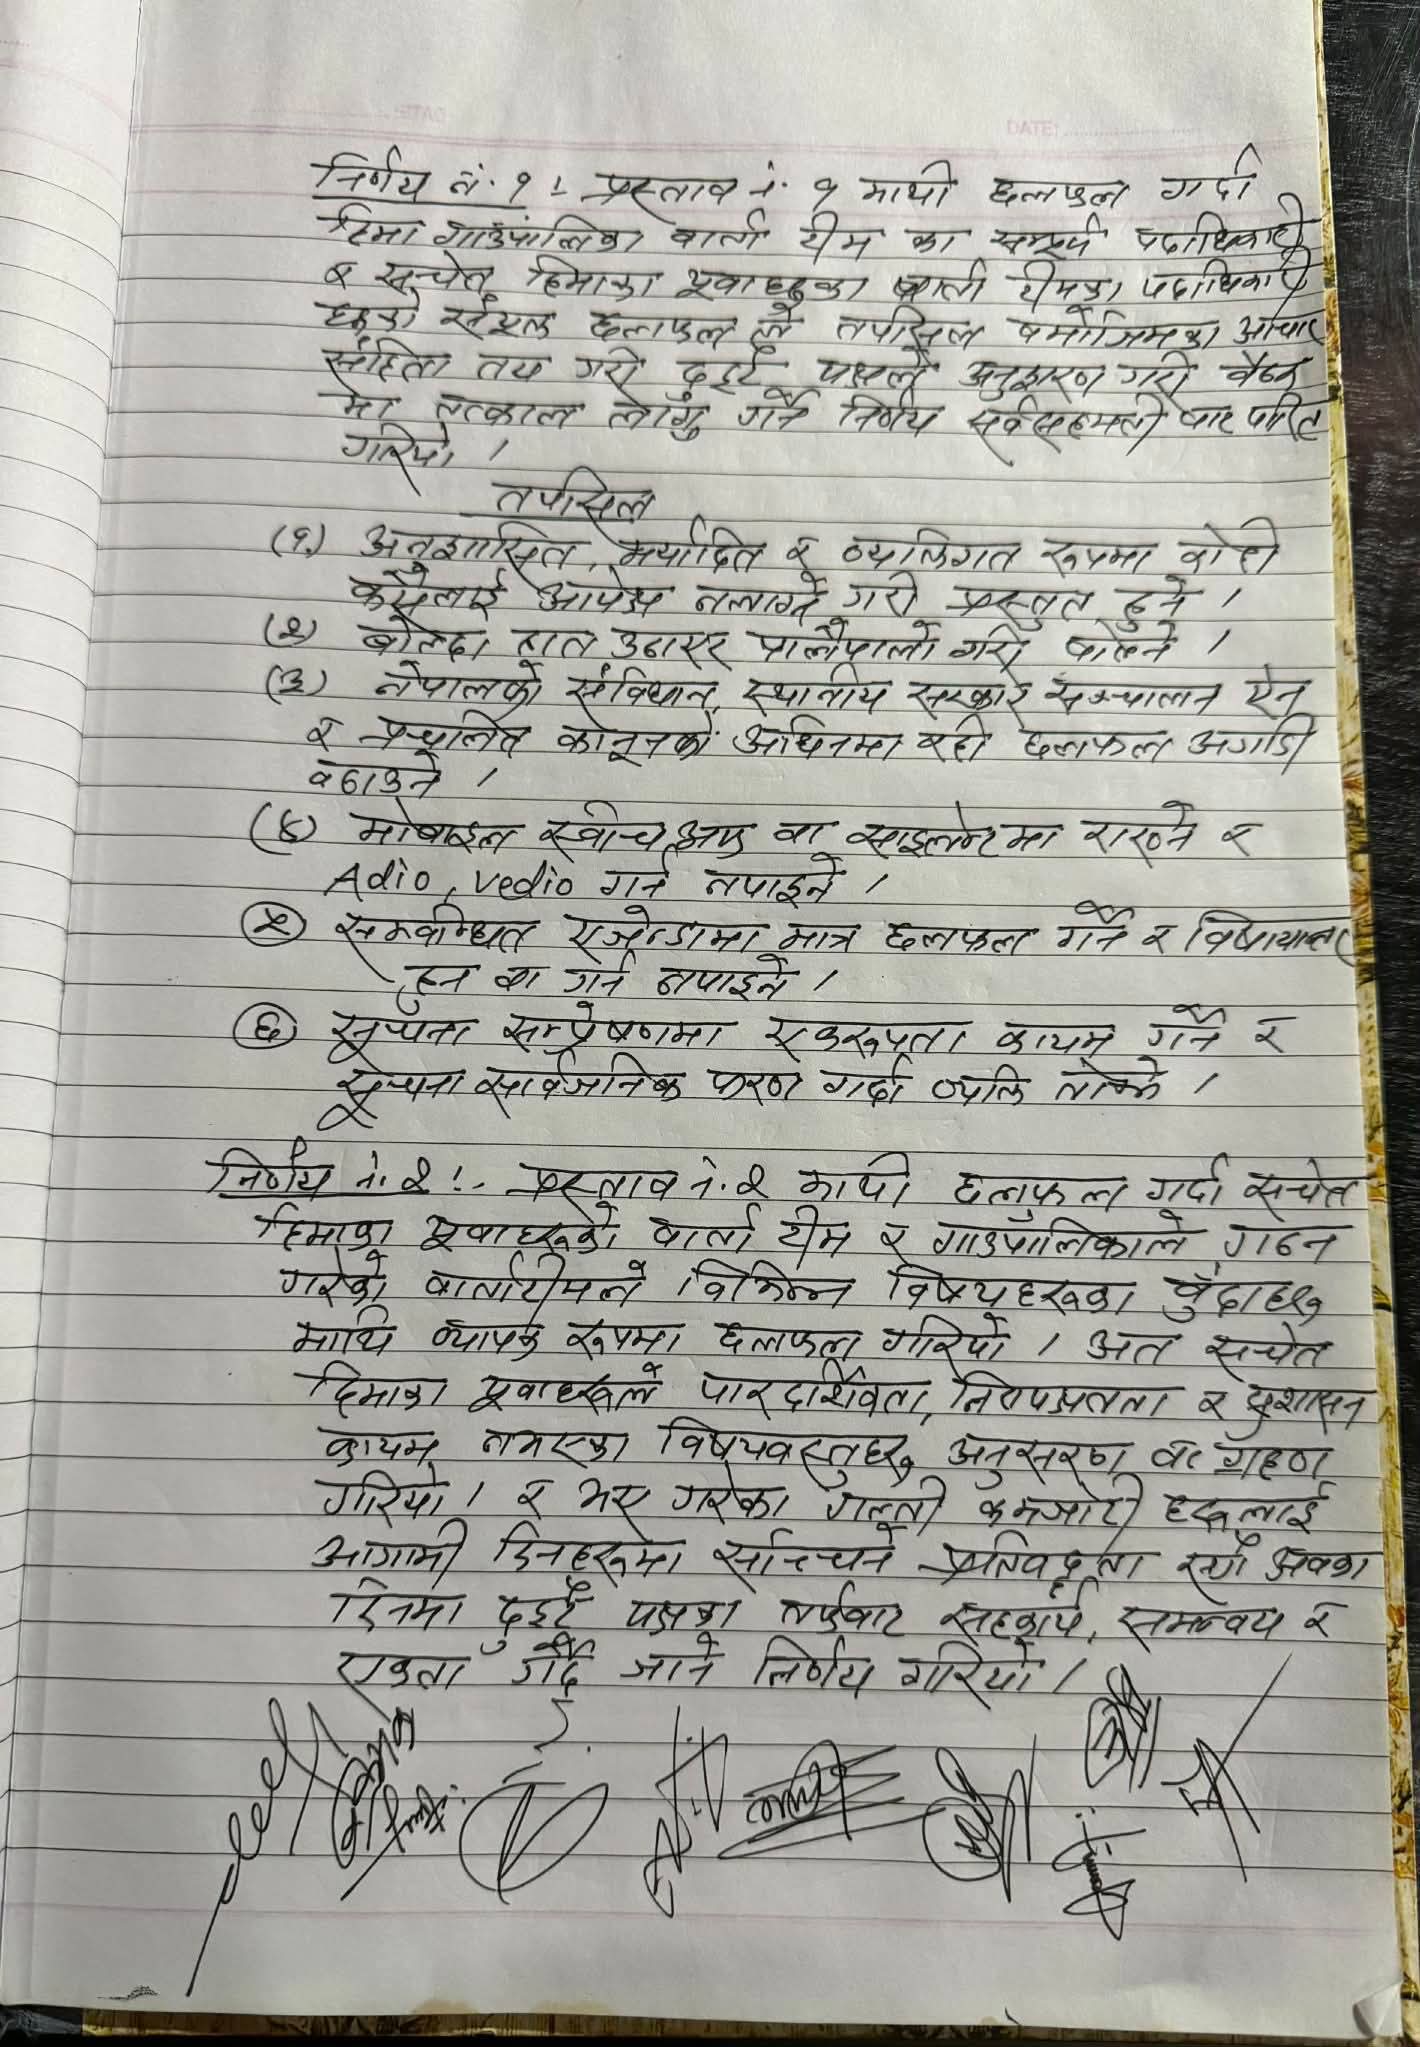 DATE:
DATE:
निर्णय नं. १ :- प्रस्ताव नं. १ माथी छलफल गर्दा
हिमा गाउँपालिका वार्ता टीम का सम्पूर्ण पदाधिकारी
र सचेत हिमाका यूवाहरुका वार्ता टीमका पदाधिकारी
हरुको संयुक्त छलफल ले तपसिल बमोजिमका आचार
संहिता तय गरी दुईटै पक्षले अनुशरण गरी बैठक
मा तत्काल लागु गर्ने निर्णय सर्वसहमती बाट पारित
गरियो ।
तपसिल
(१) अनुशासित, मर्यादित र व्यक्तिगत रूपमा कोही
कसैलाई आपेक्ष नलाग्ने गरी प्रस्तुत हुने ।
(२) बोल्दा हात उठाएर पालैपालो गरी बोल्ने ।
(३) नेपालको संविधान, स्थानीय सरकार सञ्चालन ऐन
र प्रचलित कानूनको अधिनमा रही छलफल अगाडी
बढाउने ।
(४) मोबाइल स्वीच अफ वा साइलेन्टमा राख्ने र
Adio, vedio गर्न नपाइने ।
(५) सम्बन्धित एजेन्डामा मात्र छलफल गर्ने र विषयान्तर
हुन वा गर्न नपाइने ।
(६) सूचना सम्प्रेषणमा एकरूपता कायम गर्ने र
सूचना सार्वजनिक करण गर्दा व्यक्ति तोक्ने ।
निर्णय नं. २ :- प्रस्ताव नं. २ माथी छलफल गर्दा सचेत
हिमाका यूवाहरुको वार्ता टीम र गाउँपालिकाले गठन
गरेको वार्ताटीमले विभिन्न विषयहरुका बुँदाहरु
माथि व्यापक रूपमा छलफल गरियो । अत सचेत
हिमाका यूवाहरुले पारदर्शिता, निष्पक्षता र सुशासन
कायम नभएका विषयवस्तुहरु अनुसरण वा ग्रहण
गरियो । र भए गरेका गल्ती कमजोरी हरुलाई
आगामी दिनहरुमा सच्चिने प्रतिवद्धता रुपी अबका
दिनमा दुईटै पक्षका तर्फबाट सहकार्य, समन्वय र
एकता गर्दै जाने निर्णय गरियो ।